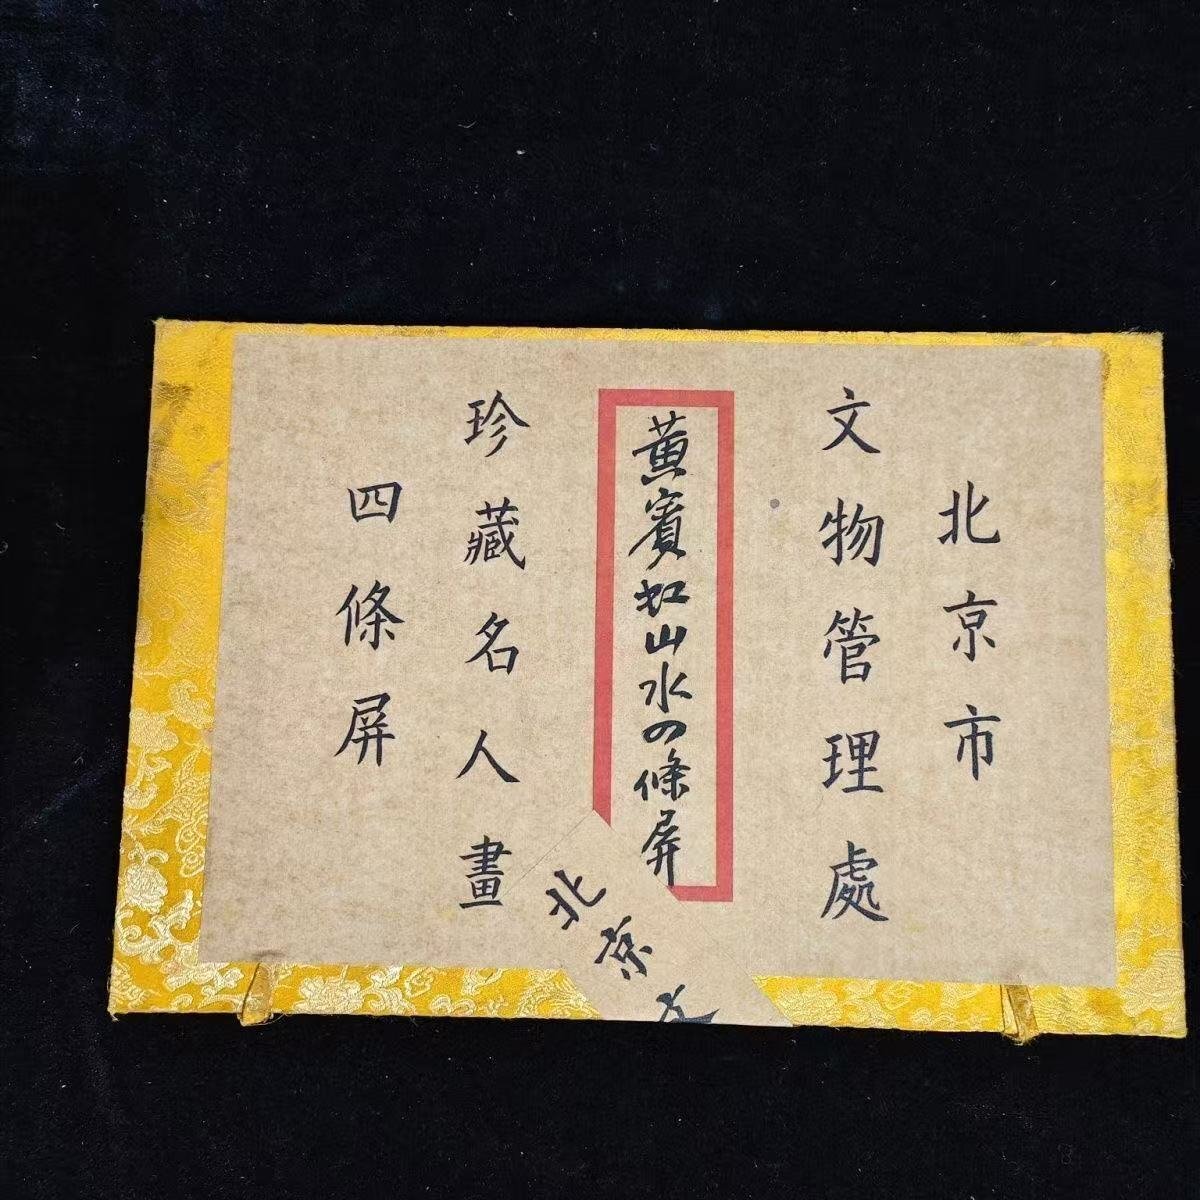 北京市
文物管理處
黄賓虹山水四條屏
珍藏名人畫
四條屏
北京文